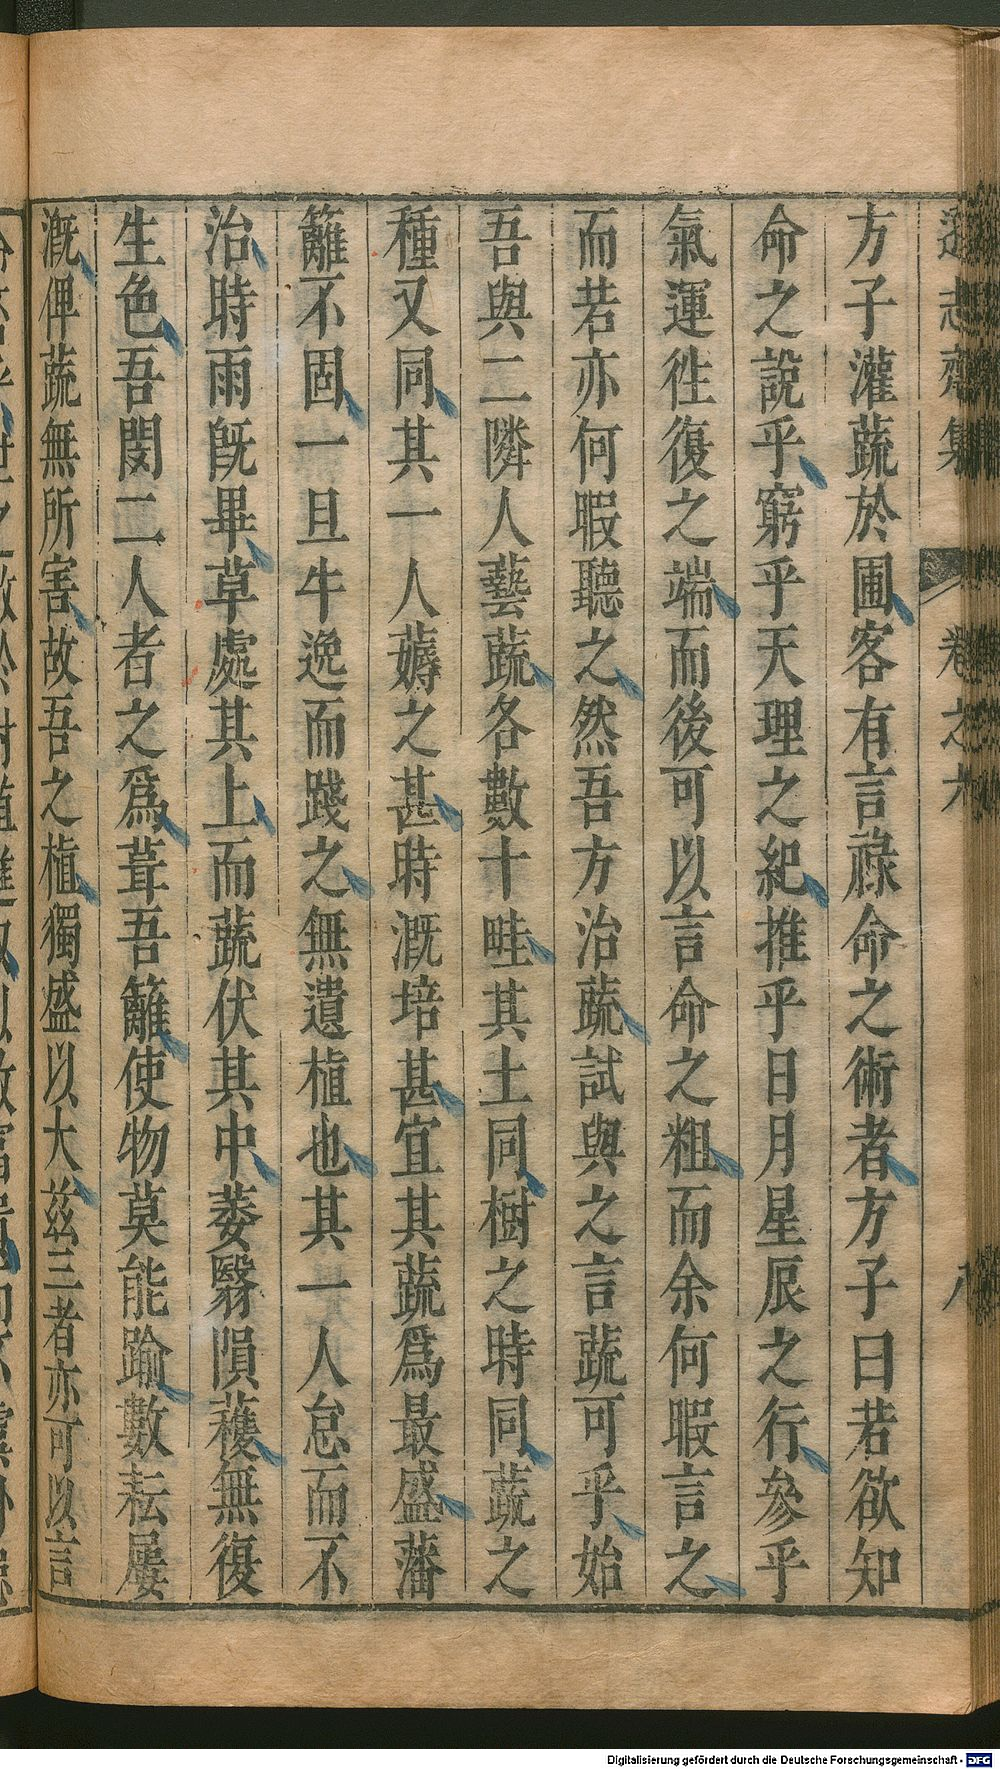 遜志齋集 卷之六 八
方子灌蔬於圃客有言祿命之術者方子曰若欲知
命之說乎窮乎天理之紀推乎日月星辰之行參乎
氣運徃復之端而後可以言命之粗而余何暇言之
而若亦何暇聽之然吾方治蔬試與之言蔬可乎始
吾與二隣人藝蔬各數十畦其土同樹之時同蔬之
種又同其一人薅之甚時溉培甚宜其蔬爲最盛藩
籬不固一旦牛逸而踐之無遺植也其一人怠而不
治時雨旣畢草處其上而蔬伏其中萎翳隕穫無復
生色吾閔二人者之爲葺吾籬使物莫能踰數耘屢
溉俾蔬無所害故吾之植獨盛以大茲三者亦可以言
Digitalisierung gefördert durch die Deutsche Forschungsgemeinschaft - DFG